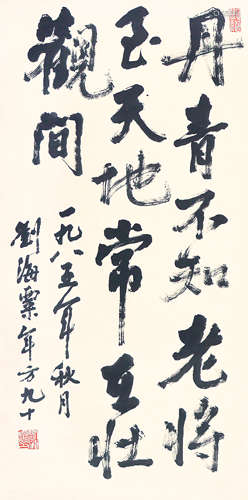 丹青不知老将
至天地常互壮
觀間
一九八五年秋月
劉海粟年方九十